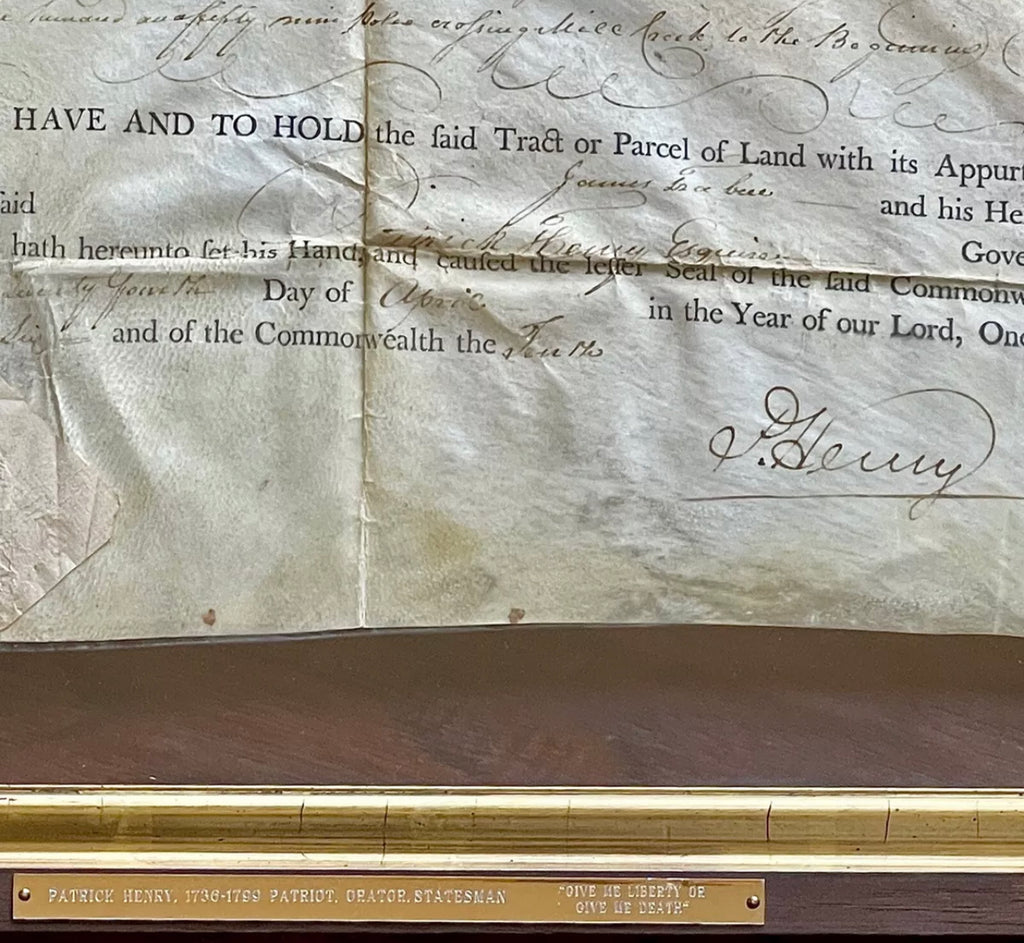 nine poles crossing Mill Creek to the Beginning
HAVE AND TO HOLD the ſaid Tract or Parcel of Land with its Appurt
James
ſaid — and his He
Patrick Henry Esquire Gove
hath hereunto ſet his Hand, and cauſed the leſſer Seal of the ſaid Commonw
twenty fourth Day of April in the Year of our Lord, One
Six and of the Commonwealth the Tenth
P. Henry
PATRICK HENRY, 1736-1799 PATRIOT, ORATOR, STATESMAN
"GIVE ME LIBERTY OR
GIVE ME DEATH"